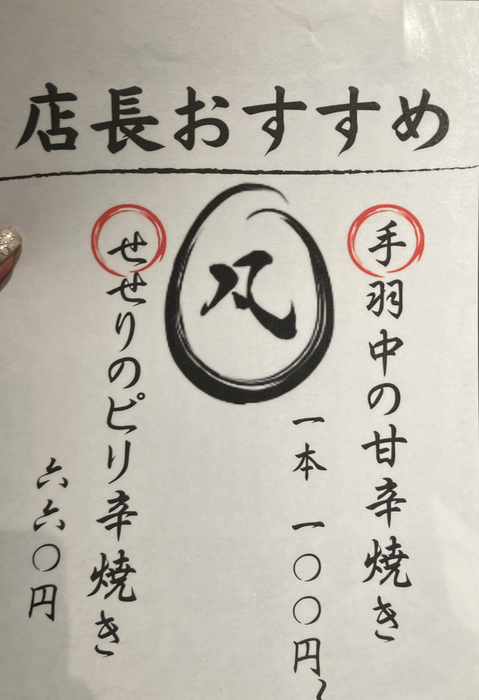 店長おすすめ
手羽中の甘辛焼き
一本 一〇〇円〜
せせりのピリ辛焼き
六六〇円